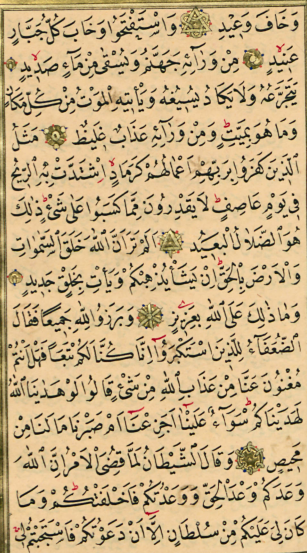 وَخَافَ وَعِيدِ وَاسْتَفْتَحُوا وَخَابَ كُلُّ جَبَّارٍ
عَنِيدٍ مِنْ وَرَآئِهِ جَهَنَّمُ وَيُسْقٰى مِنْ مَآءٍ صَدِيدٍ
يَتَجَرَّعُهُ وَلَا يَكَادُ يُسِيغُهُ وَيَأْتِيهِ الْمَوْتُ مِنْ كُلِّ مَكَانٍ
وَمَا هُوَ بِمَيِّتٍ وَمِنْ وَرَآئِهِ عَذَابٌ غَلِيظٌ مَثَلُ
الَّذِينَ كَفَرُوا بِرَبِّهِمْ اَعْمَالُهُمْ كَرَمَادٍ اشْتَدَّتْ بِهِ الرِّيحُ
فِي يَوْمٍ عَاصِفٍ لَا يَقْدِرُونَ مِمَّا كَسَبُوا عَلٰى شَيْءٍ ذٰلِكَ
هُوَ الضَّلَالُ الْبَعِيدُ اَلَمْ تَرَ اَنَّ اللّٰهَ خَلَقَ السَّمٰوَاتِ
وَالْاَرْضَ بِالْحَقِّ اِنْ يَشَأْ يُذْهِبْكُمْ وَيَأْتِ بِخَلْقٍ جَدِيدٍ
وَمَا ذٰلِكَ عَلَى اللّٰهِ بِعَزِيزٍ وَبَرَزُوا لِلّٰهِ جَمِيعًا فَقَالَ
الضُّعَفٰٓؤُا لِلَّذِينَ اسْتَكْبَرُوا اِنَّا كُنَّا لَكُمْ تَبَعًا فَهَلْ اَنْتُمْ
مُغْنُونَ عَنَّا مِنْ عَذَابِ اللّٰهِ مِنْ شَيْءٍ قَالُوا لَوْ هَدٰينَا اللّٰهُ
لَهَدَيْنَاكُمْ سَوَآءٌ عَلَيْنَا اَجَزِعْنَا اَمْ صَبَرْنَا مَا لَنَا مِنْ
مَحِيصٍ وَقَالَ الشَّيْطَانُ لَمَّا قُضِيَ الْاَمْرُ اِنَّ اللّٰهَ
وَعَدَكُمْ وَعْدَ الْحَقِّ وَوَعَدْتُكُمْ فَاَخْلَفْتُكُمْ وَمَا
كَانَ لِيَ عَلَيْكُمْ مِنْ سُلْطَانٍ اِلَّا اَنْ دَعَوْتُكُمْ فَاسْتَجَبْتُمْ لِي